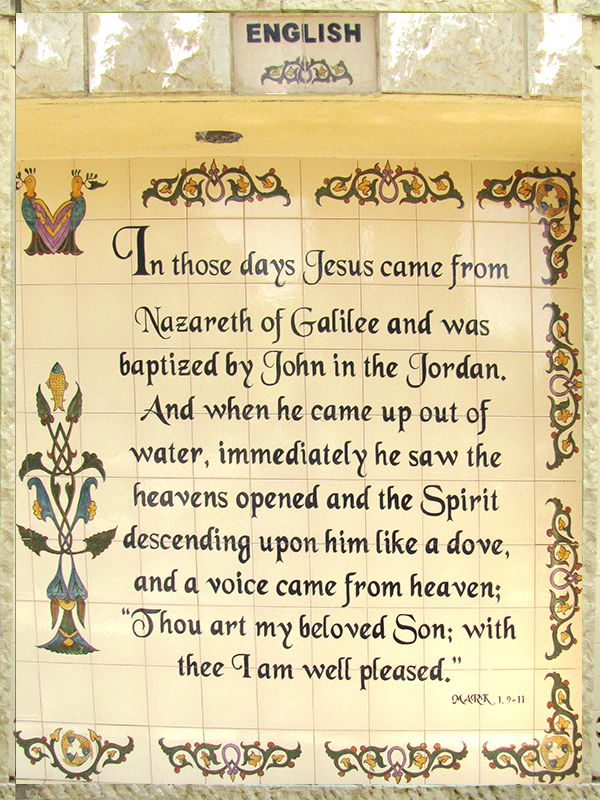 ENGLISH
In those days Jesus came from
Nazareth of Galilee and was
baptized by John in the Jordan.
And when he came up out of
water, immediately he saw the
heavens opened and the Spirit
descending upon him like a dove,
and a voice came from heaven;
“Thou art my beloved Son; with
thee I am well pleased.”
MARK, 1, 9-11